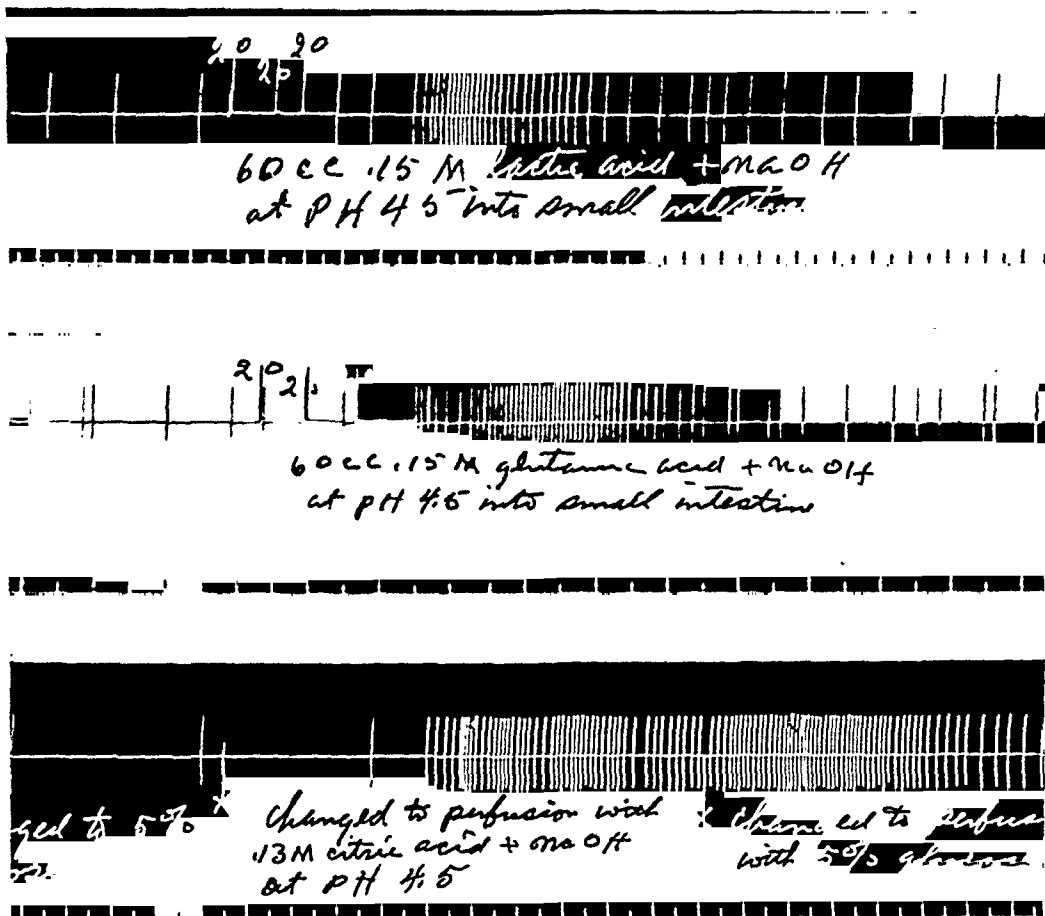 20 20
20
60 cc .15 M lactic acid + NaOH
at PH 4 5 into small intestin
20 2
60 cc .15 M glutamic acid + NaOH
at pH 4.5 into small intestine
ged to 5%
x changed to perfusion with
.13M citric acid + NaOH
at PH 4.5
x Changed to perfus
with 5%